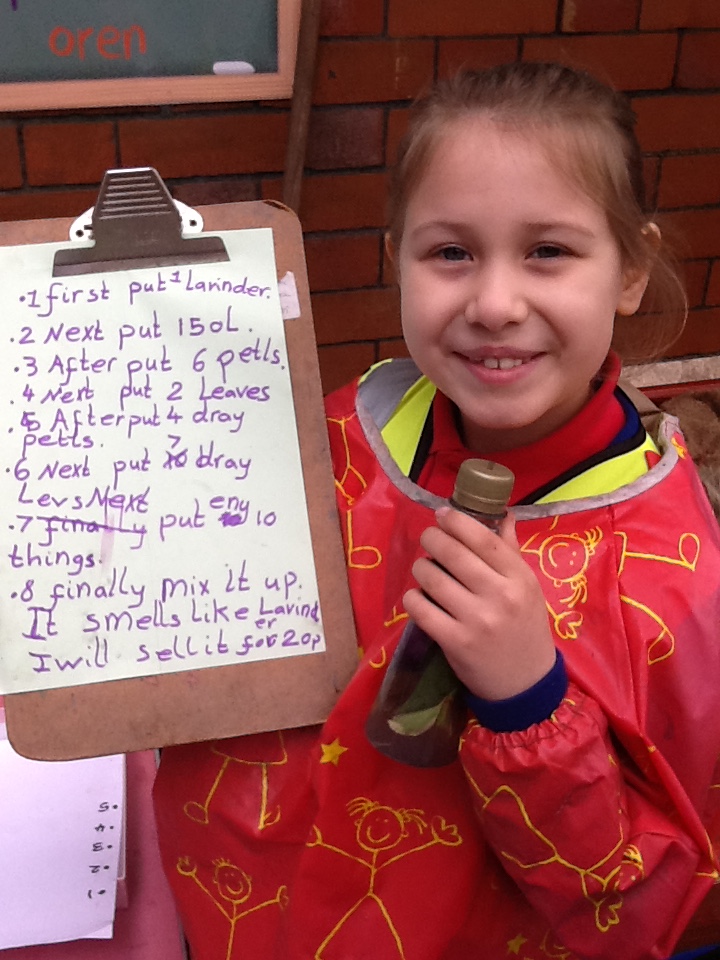 oren
.1 first put 1 Lavinder.
.2 Next put 150L.
.3 After put 6 petls.
.4 Next put 2 Leaves
.5 After put 4 dray
petls.
.6 Next put 7 dray
Levs Next
.7 finally put eny 10
things.
.8 finally mix it up.
It smells like Lavind
er
I will sell it for 20p
5.
4.
3.
2.
1.